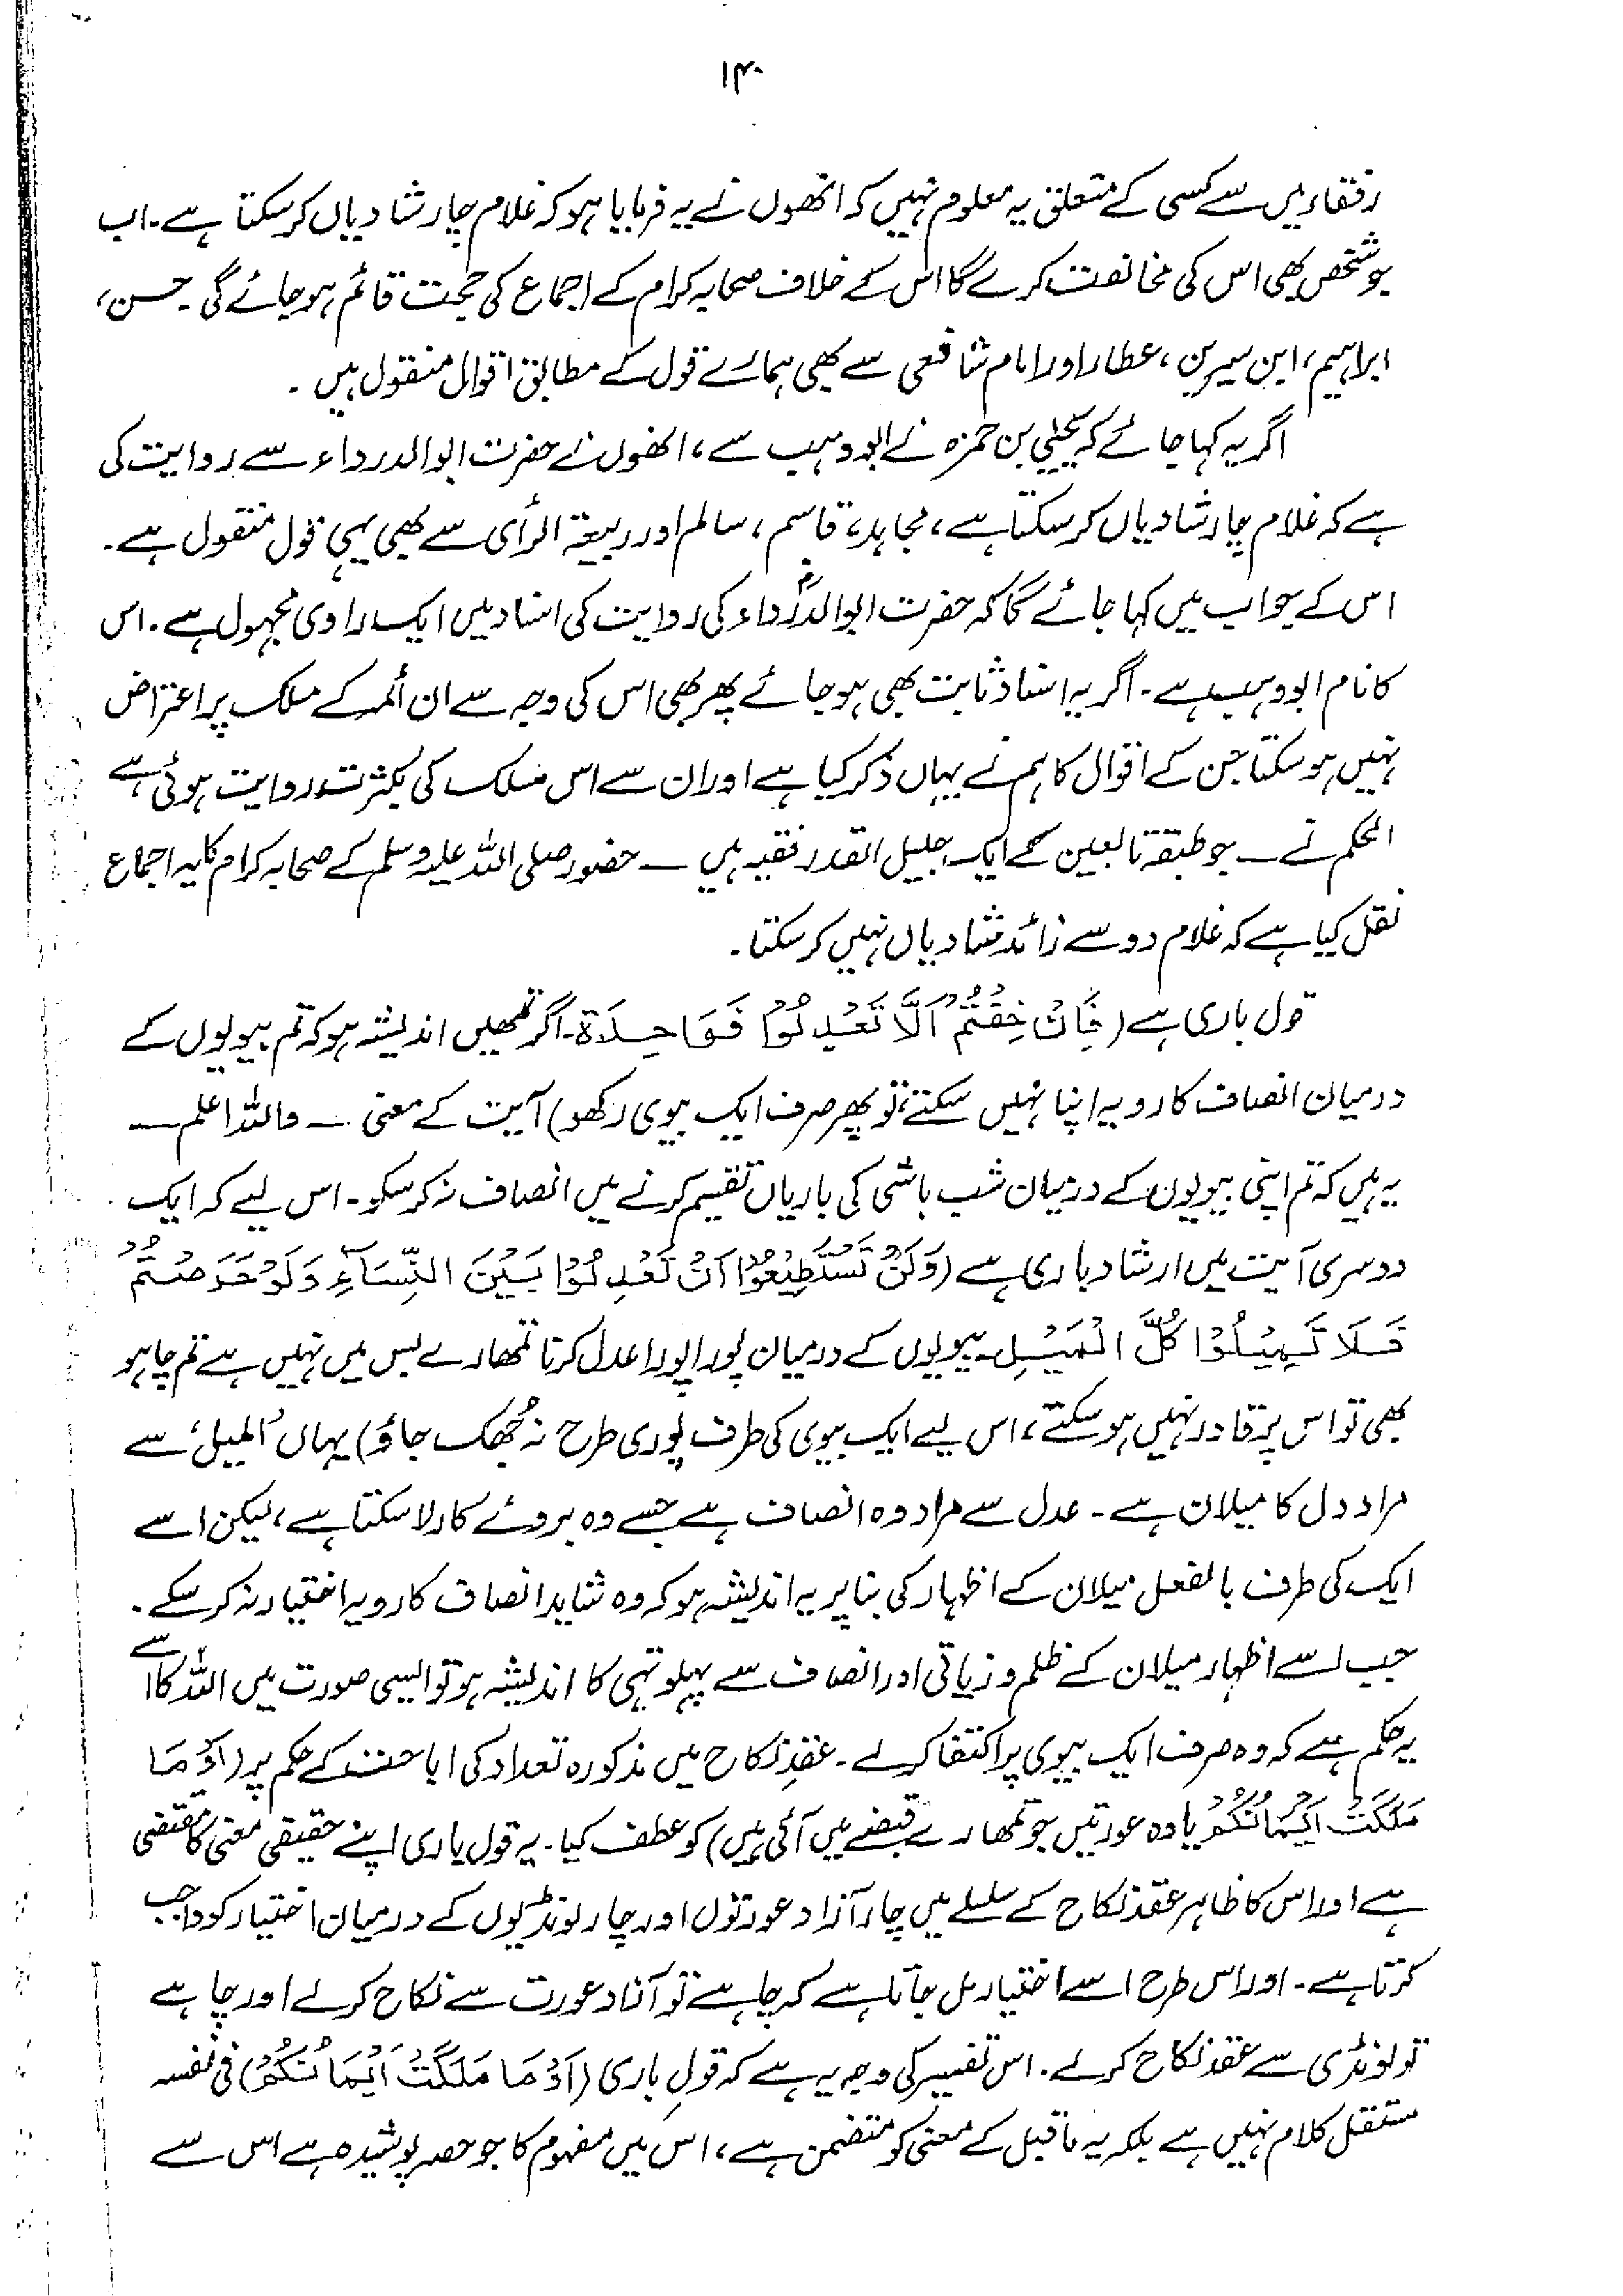 ۱۴۰
رفقاء میں سے کسی کے متعلق یہ معلوم نہیں کہ انھوں نے یہ فرمایا ہو کہ غلام چار شادیاں کر سکتا ہے۔ اب
جو شخص بھی اس کی مخالفت کرے گا اس کے خلاف صحابہ کرام کے اجماع کی حجت قائم ہو جائے گی۔ حسن،
ابراہیم، ابن سیرین، عطاء اور امام شافعی سے بھی ہمارے قول کے مطابق اقوال منقول ہیں۔
اگر یہ کہا جائے کہ یحییٰ بن حمزہ نے ابو وہیب سے، انھوں نے حضرت ابوالدرداء سے روایت کی
ہے کہ غلام چار شادیاں کر سکتا ہے، مجاہد، قاسم، سالم اور ربیعۃ الرأی سے بھی یہی قول منقول ہے۔
اس کے جواب میں کہا جائے گا کہ حضرت ابوالدرداءؓ کی روایت کی اسناد میں ایک راوی مجہول ہے۔ اس
کا نام ابو وہیب ہے۔ اگر یہ اسناد ثابت بھی ہو جائے پھر بھی اس کی وجہ سے ان ائمہ کے مسلک پر اعتراض
نہیں ہو سکتا جن کے اقوال کا ہم نے یہاں ذکر کیا ہے اور ان سے اس مسلک کی بکثرت روایت ہوئی ہے
الحکم نے ــ جو طبقۂ تابعین کے ایک جلیل القدر فقیہ ہیں ــ حضور صلی اللہ علیہ وسلم کے صحابہ کرام کا یہ اجماع
نقل کیا ہے کہ غلام دو سے زائد شادیاں نہیں کر سکتا۔
قول باری ہے (فَاِنْ خِفْتُمْ اَلَّا تَعْدِلُوْا فَوَاحِدَۃً۔ اگر تمھیں اندیشہ ہو کہ تم بیویوں کے
درمیان انصاف کا رویہ اپنا نہیں سکتے، تو پھر صرف ایک بیوی رکھو) آیت کے معنی ــ واللہ اعلم ــ
یہ ہیں کہ تم اپنی بیویوں کے درمیان شب باشی کی باریاں تقسیم کرنے میں انصاف نہ کر سکو۔ اس لیے کہ ایک
دوسری آیت میں ارشاد باری ہے (وَلَنْ تَسْتَطِیْعُوْا اَنْ تَعْدِلُوْا بَیْنَ النِّسَآءِ وَلَوْ حَرَصْتُمْ
فَلَا تَمِیْلُوْا کُلَّ الْمَیْلِ۔ بیویوں کے درمیان پورا پورا عدل کرنا تمھارے بس میں نہیں ہے تم چاہو
بھی تو اس پر قادر نہیں ہو سکتے، اس لیے ایک بیوی کی طرف پوری طرح نہ جُھک جاؤ) یہاں 'المیل' سے
مراد دل کا میلان ہے۔ عدل سے مراد وہ انصاف ہے جسے وہ بروئے کار لا سکتا ہے، لیکن اسے
ایک کی طرف بالفعل میلان کے اظہار کی بنا پر یہ اندیشہ ہو کہ وہ شاید انصاف کا رویہ اختیار نہ کر سکے۔
جب اسے اظہار میلان کے ظلم و زیاتی اور انصاف سے پہلو تہی کا اندیشہ ہو تو ایسی صورت میں اللہ کا اسے
یہ حکم ہے کہ وہ صرف ایک بیوی پر اکتفا کرلے۔ عقدِ نکاح میں مذکورہ تعداد کی اباحت کے حکم پر (اَوْ مَا
مَلَکَتْ اَیْمَانُکُمْ یا وہ عورتیں جو تمھارے قبضے میں آئی ہیں) کو عطف کیا۔ یہ قول باری اپنے حقیقی معنی کا مقتضی
ہے اور اس کا ظاہر عقد نکاح کے سلسلے میں چار آزاد عورتوں اور چار لونڈیوں کے درمیان اختیار کو واجب
کرتا ہے۔ اور اس طرح اسے اختیار مل جاتا ہے کہ چاہے تو آزاد عورت سے نکاح کرلے اور چاہے
تو لونڈی سے عقد نکاح کرلے۔ اس تفسیر کی وجہ یہ ہے کہ قولِ باری (اَوْ مَا مَلَکَتْ اَیْمَانُکُمْ) فی نفسہ
مستقل کلام نہیں ہے بلکہ یہ ماقبل کے معنی کو متضمن ہے، اس میں مفہوم کا جو حصہ پوشیدہ ہے اس سے